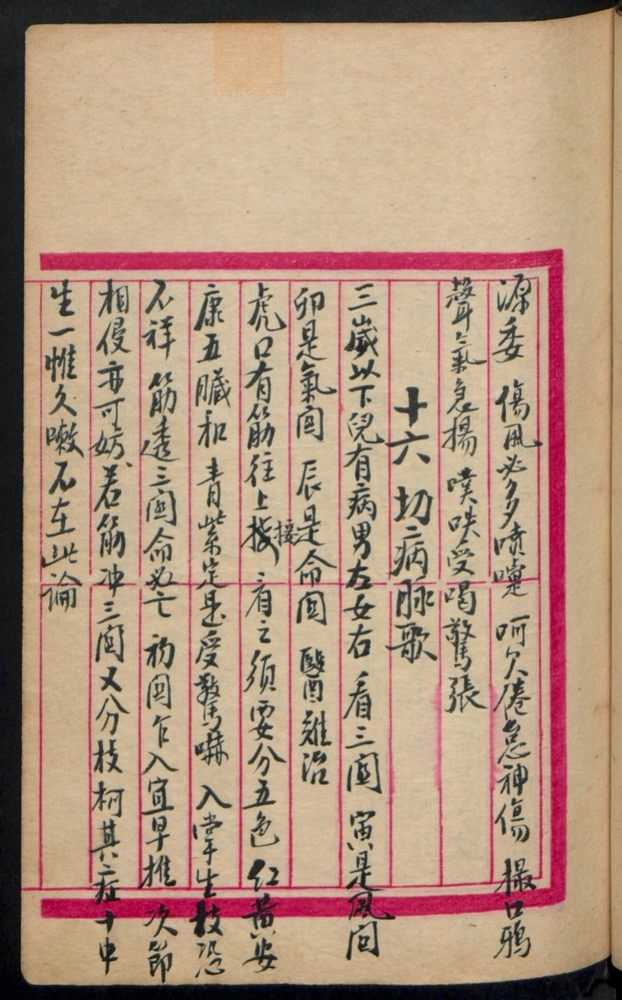 源委 傷風必多噴嚏 呵欠倦怠神傷 撮口鴉
聲氣急揚 噗呋受喝驚張
十六 切病脉歌
三歲以下兒有病男左女右 看三関 寅是風関
卯是氣関 辰是命関 醫难治
虎口有筋往上接 看之須要分五色 红黃安
康五臟和 青紫定是受驚嚇 入掌生枝恐
不祥 筋透三関命必亡 初関乍入宜早推 次節
相侵亦可妨 若筋冲三関又分枝柯其症十中
生一惟久嗽不在此論